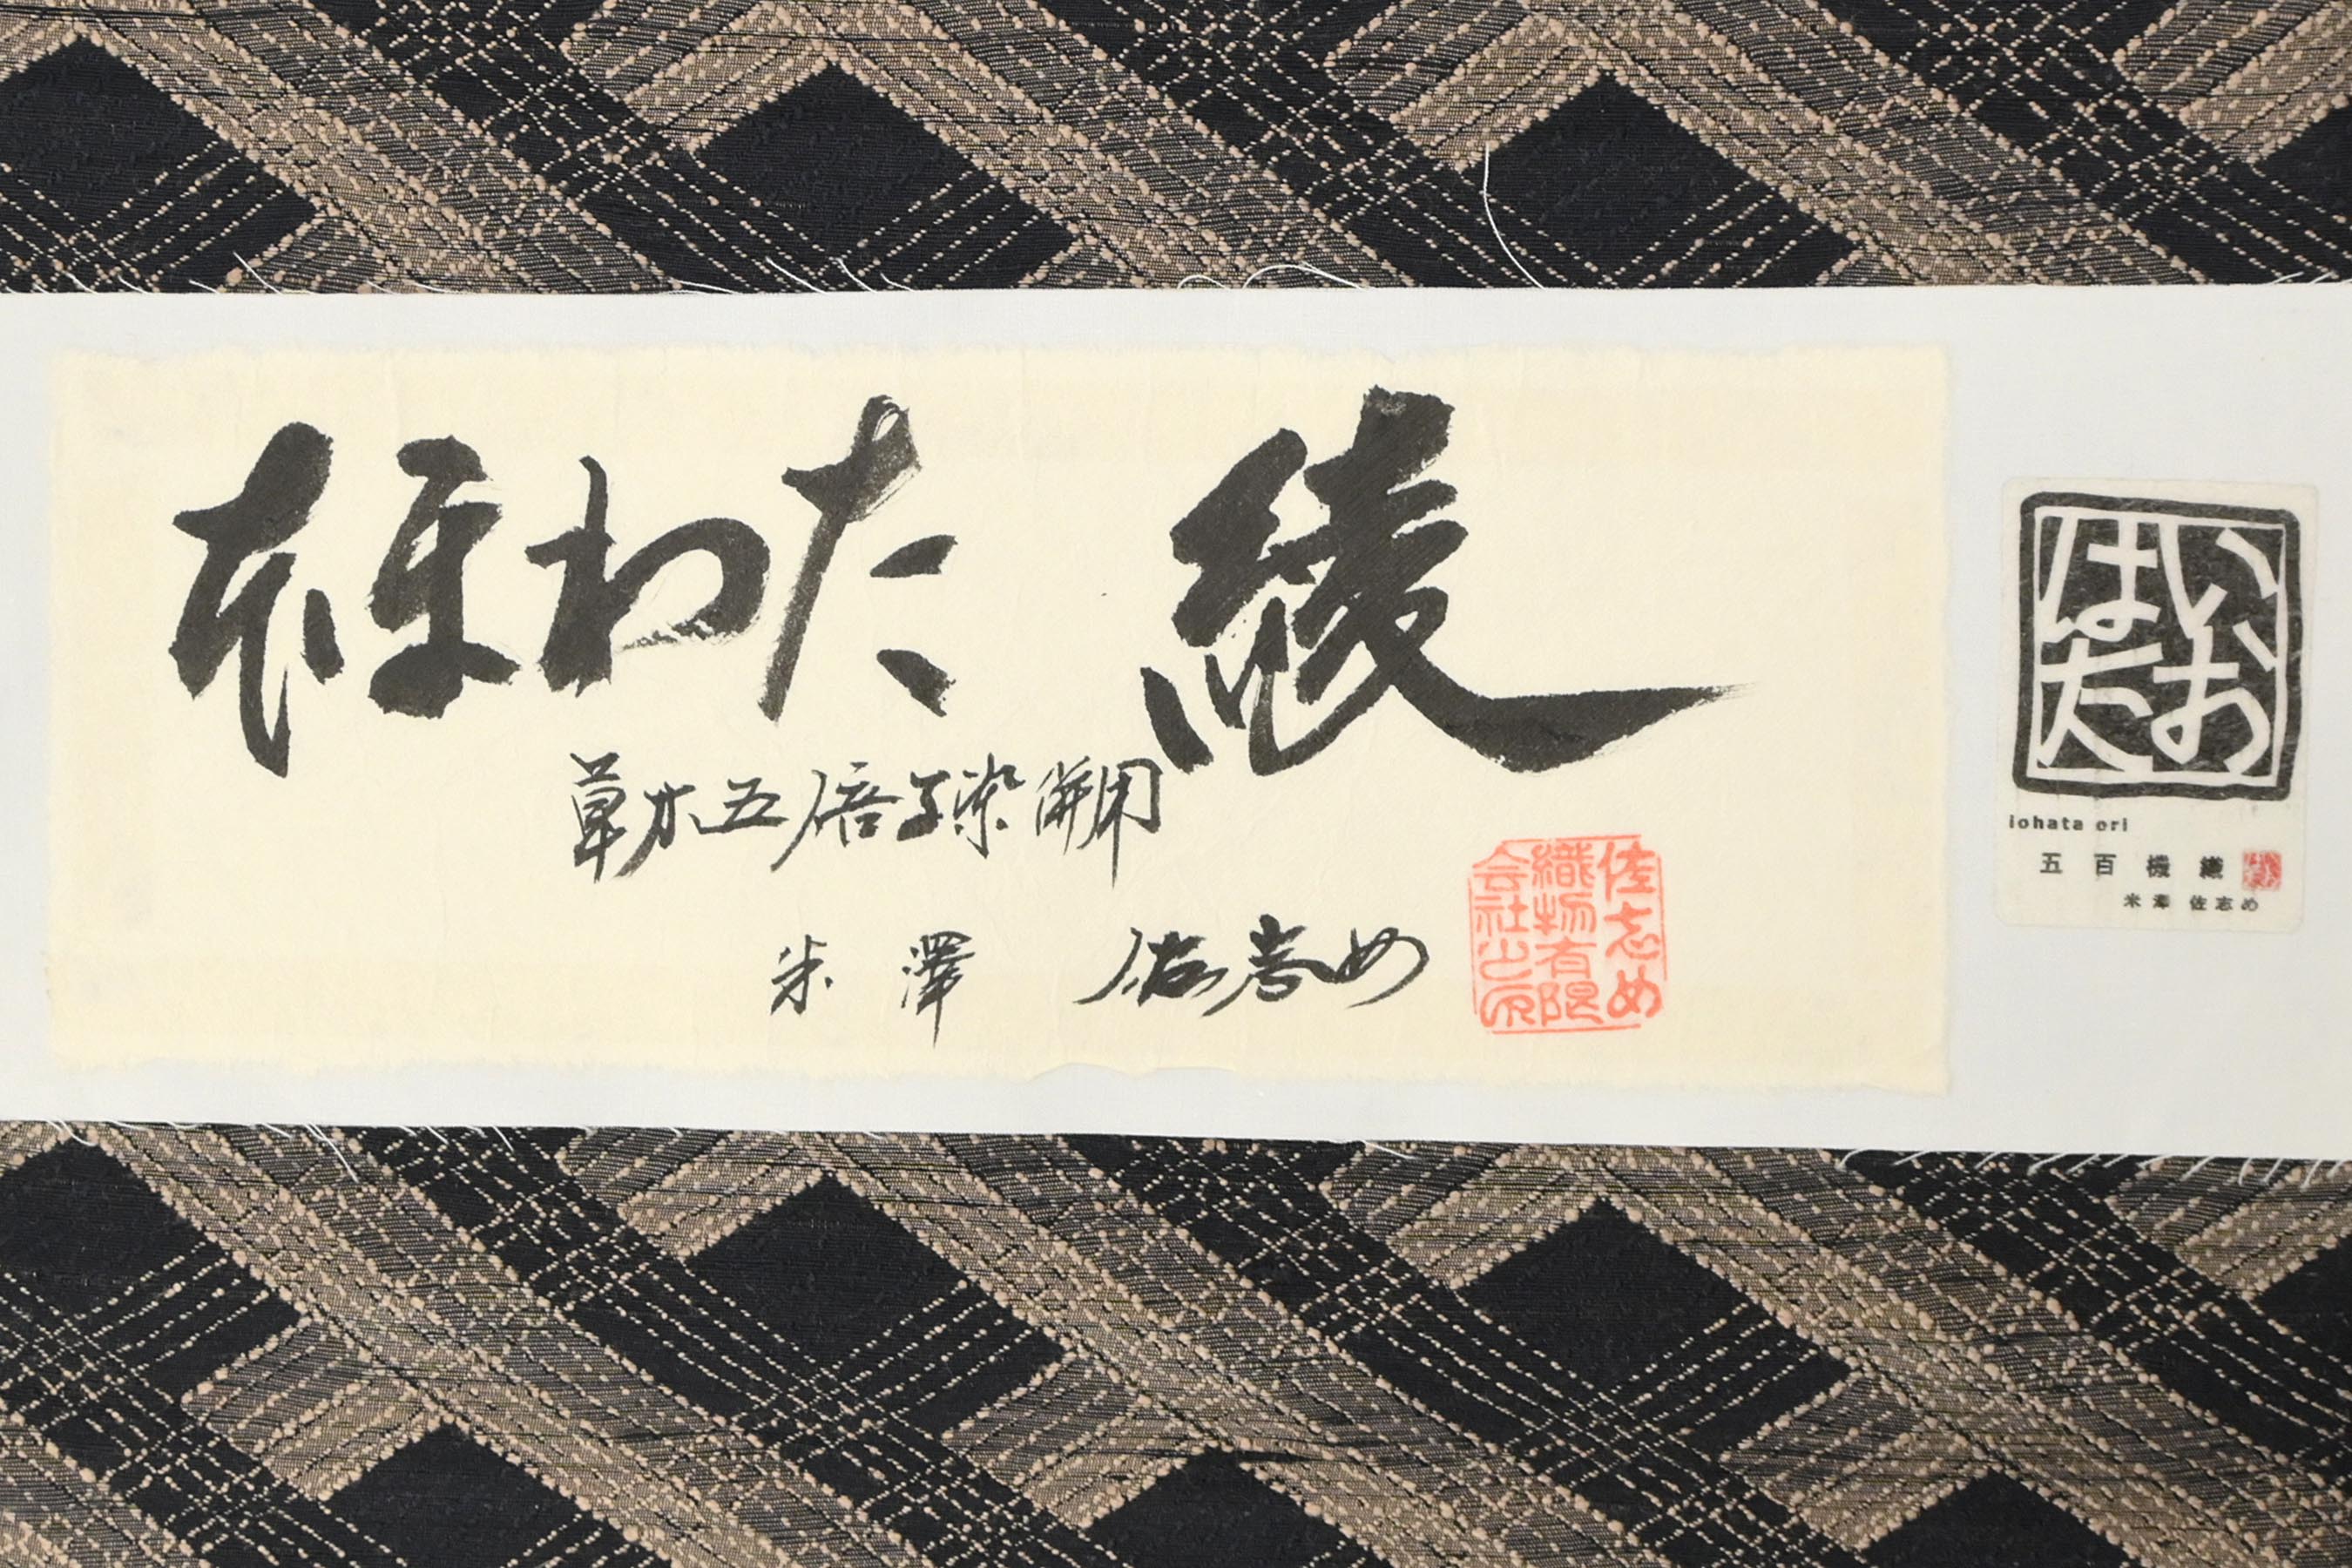 わた 綾
草木五倍子染併用
米澤 佐志め
佐志め
織物有限
会社之印
いお
はた
iohata ori
五百機織
米澤 佐志め